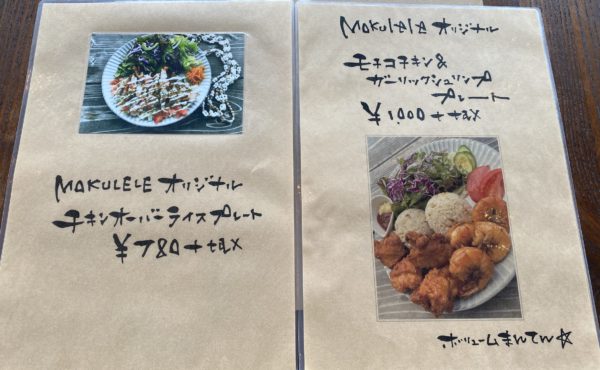 MAKULELE オリジナル
チキンオーバーライスプレート
¥780+tax
MAKULELE オリジナル
モチコチキン&
ガーリックシュリンプ
プレート
¥1000+tax
ボリュームまんてん☆